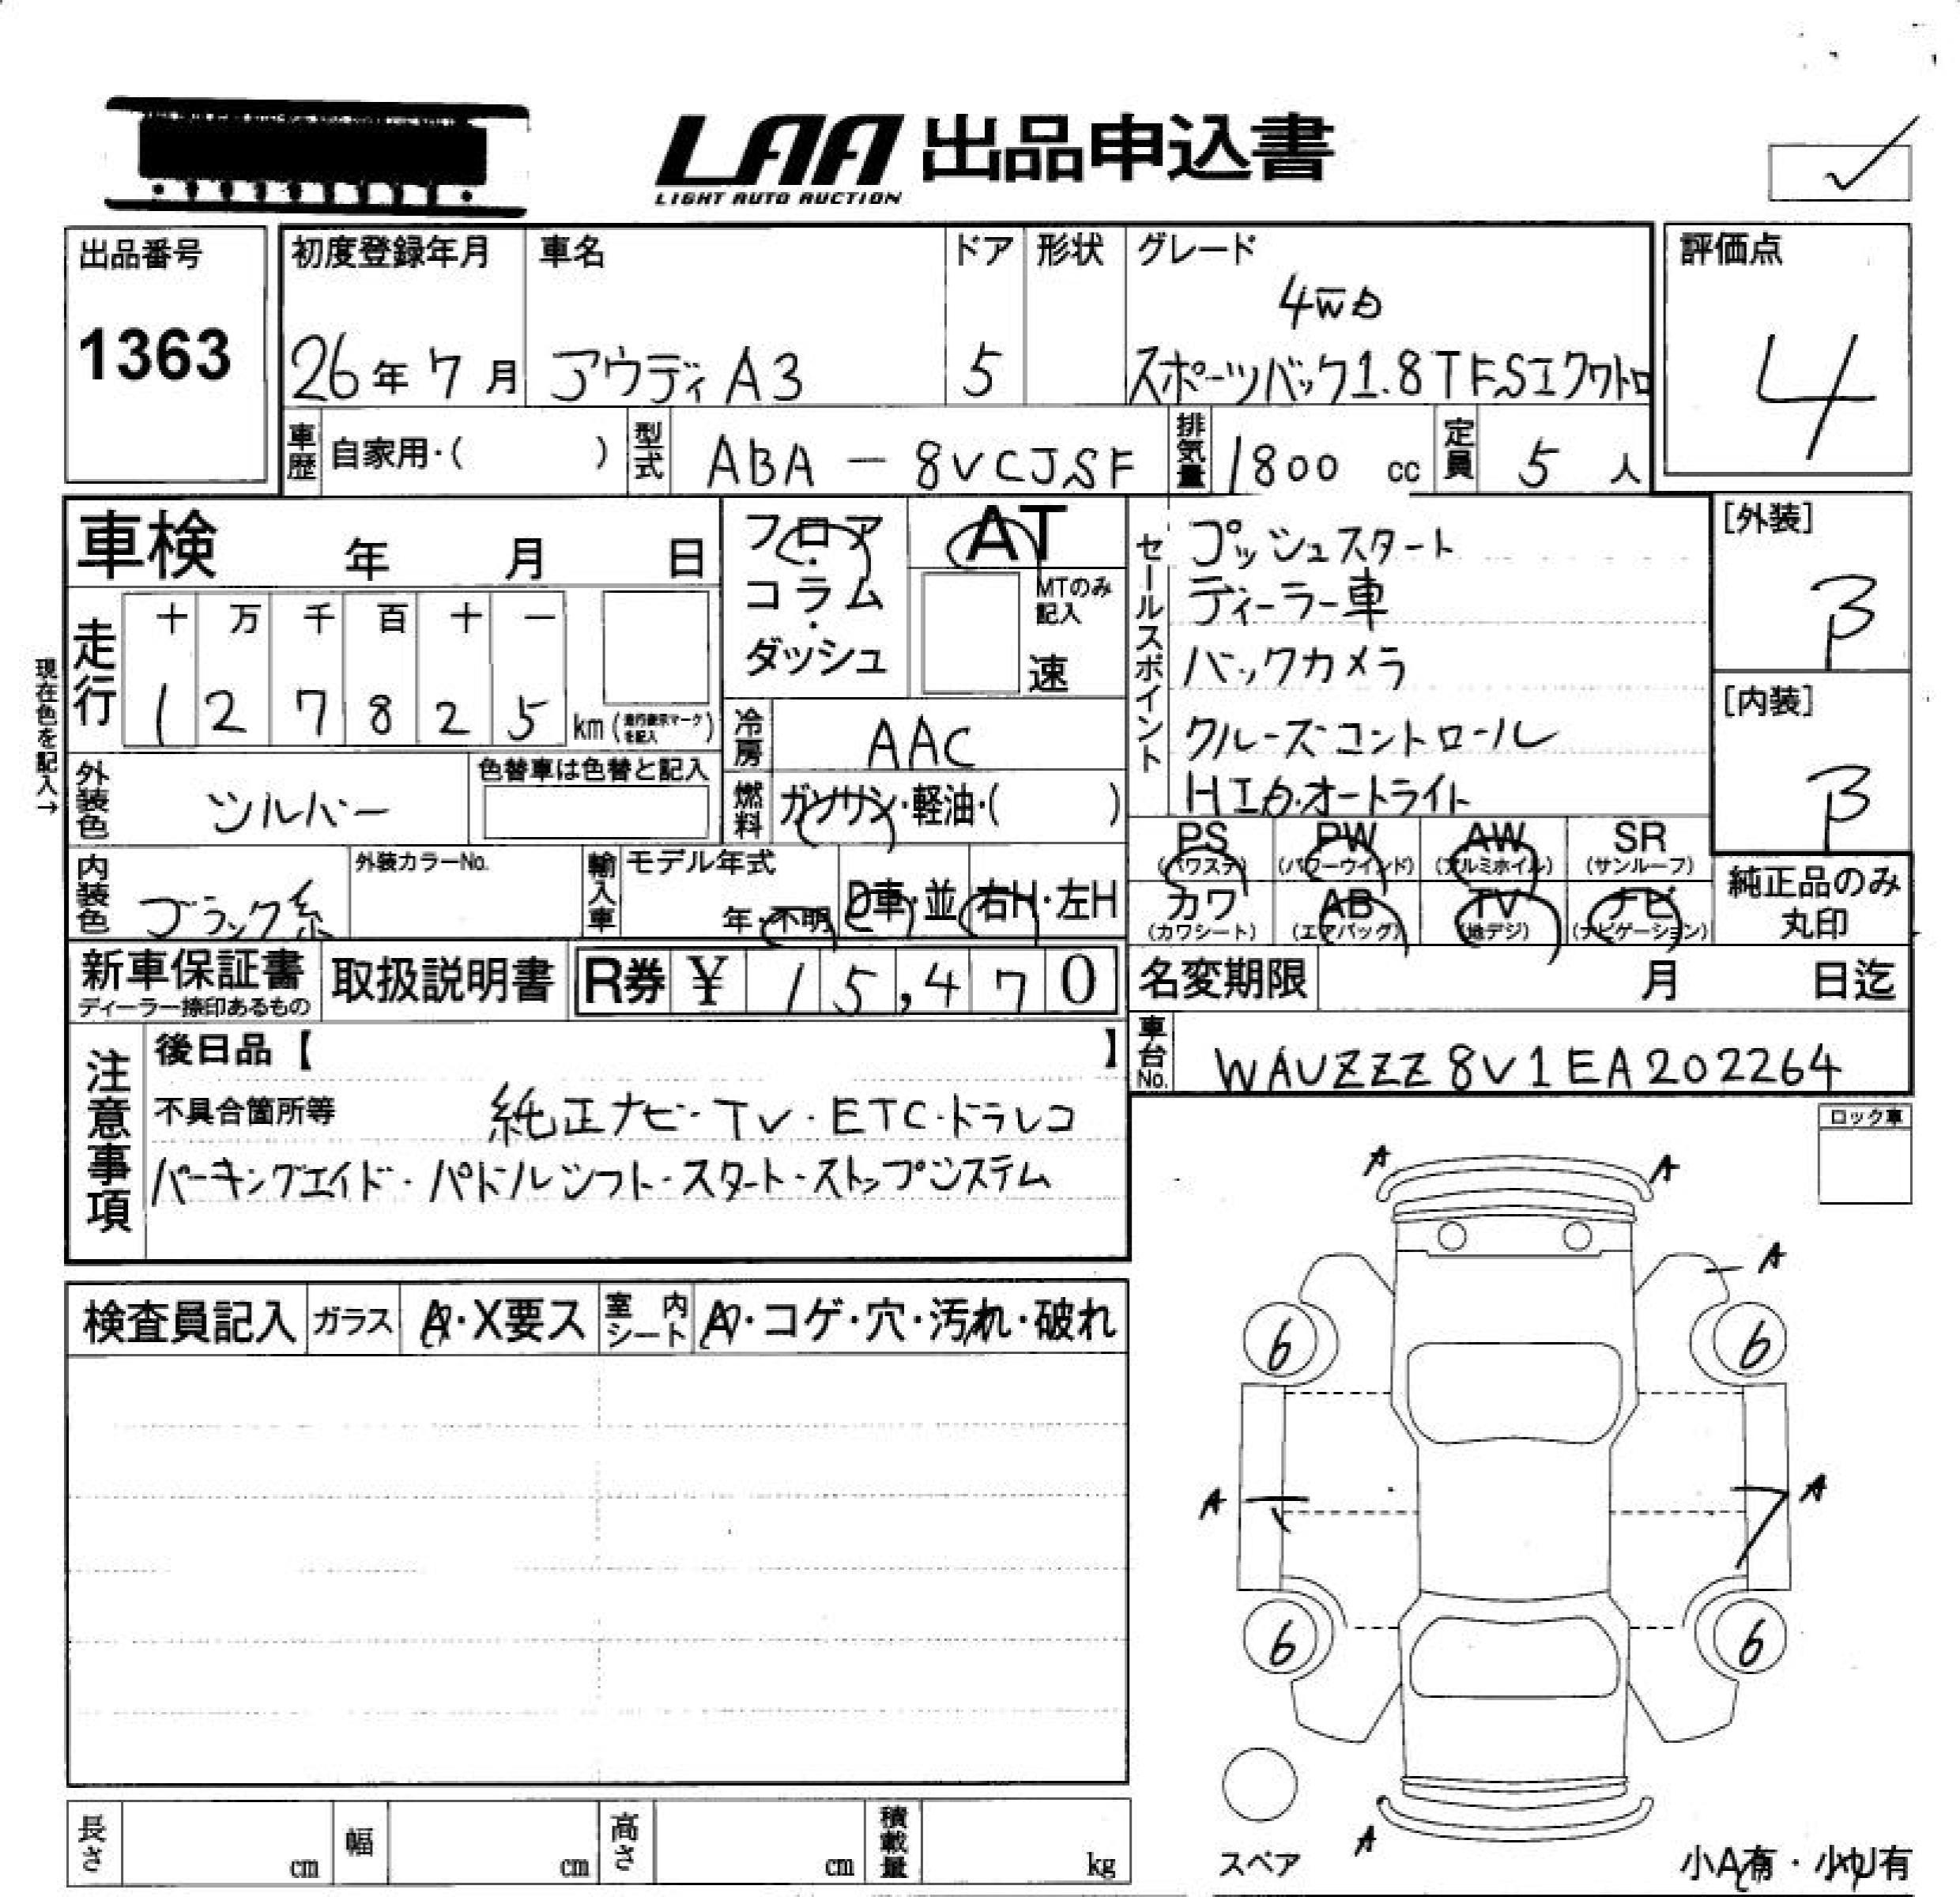 LAA 出品申込書
LIGHT AUTO AUCTION
出品番号
1363
初度登録年月
26年7月
車名
アウディA3
ドア
5
形状
グレード
4WD
スポーツバック1.8TFSIクワトロ
評価点
4
車歴 自家用・( )
型式 ABA-8VCJSF
排気量 1800 cc
定員 5 人
車検 年 月 日
フロア・コラム・ダッシュ
AT
MTのみ記入
速
セールスポイント
プッシュスタート
ディーラー車
バックカメラ
クルーズコントロール
HID・オートライト
[外装]
B
[内装]
B
現在色を記入→
走行
十 万 千 百 十 一
1 2 7 8 2 5 km (走行表示マークを記入)
冷房 AAC
燃料 ガソリン・軽油・( )
外装色 シルバー
色替車は色替と記入
内装色 ブラック系
外装カラーNo.
輸入車
モデル年式
年・不明
D車・並
右H・左H
PS (パワステ)
PW (パワーウインド)
AW (アルミホイル)
SR (サンルーフ)
カワ (カワシート)
AB (エアバッグ)
TV (地デジ)
ナビ (ナビゲーション)
純正品のみ丸印
新車保証書
ディーラー捺印あるもの
取扱説明書
R券 ¥ 15,470
名変期限 月 日迄
車台No. WAUZZZ8V1EA202264
注意事項
後日品【 】
不具合箇所等 純正ナビ・TV・ETC・ドラレコ
パーキングエイド・パドルシフト・スタート・ストップシステム
ロック車
検査員記入
ガラス A・X要ス
室内シート A・コゲ・穴・汚れ・破れ
A A
A
6 6
A A
6 6
A
スペア
小A有・小U有
長さ cm
幅 cm
高さ cm
積載量 kg